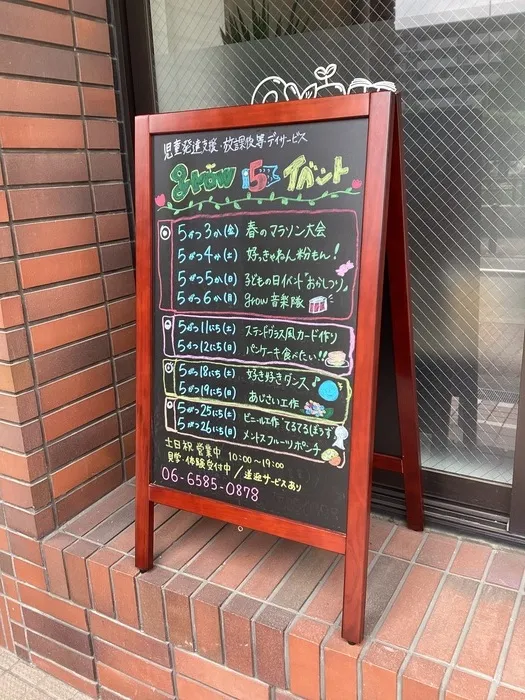 児童発達支援・放課後等デイサービス
grow 5月 イベント
5がつ3か(金) 春のマラソン大会
5がつ4か(土) 好っきゃねん粉もん!
5がつ5か(日) 子どもの日イベント"おかしつり"
5がつ6か(月) grow音楽隊
5がつ11にち(土) ステンドグラス風カード作り
5がつ12にち(日) パンケーキ食べたい!!
5がつ18にち(土) 好き好きダンス♪
5がつ19にち(日) あじさい工作
5がつ25にち(土) ビニール工作"てるてるぼうず"
5がつ26にち(日) メントスフルーツポンチ
土日祝営業中 10:00~19:00
見学・体験受付中/送迎サービスあり
06-6585-0878